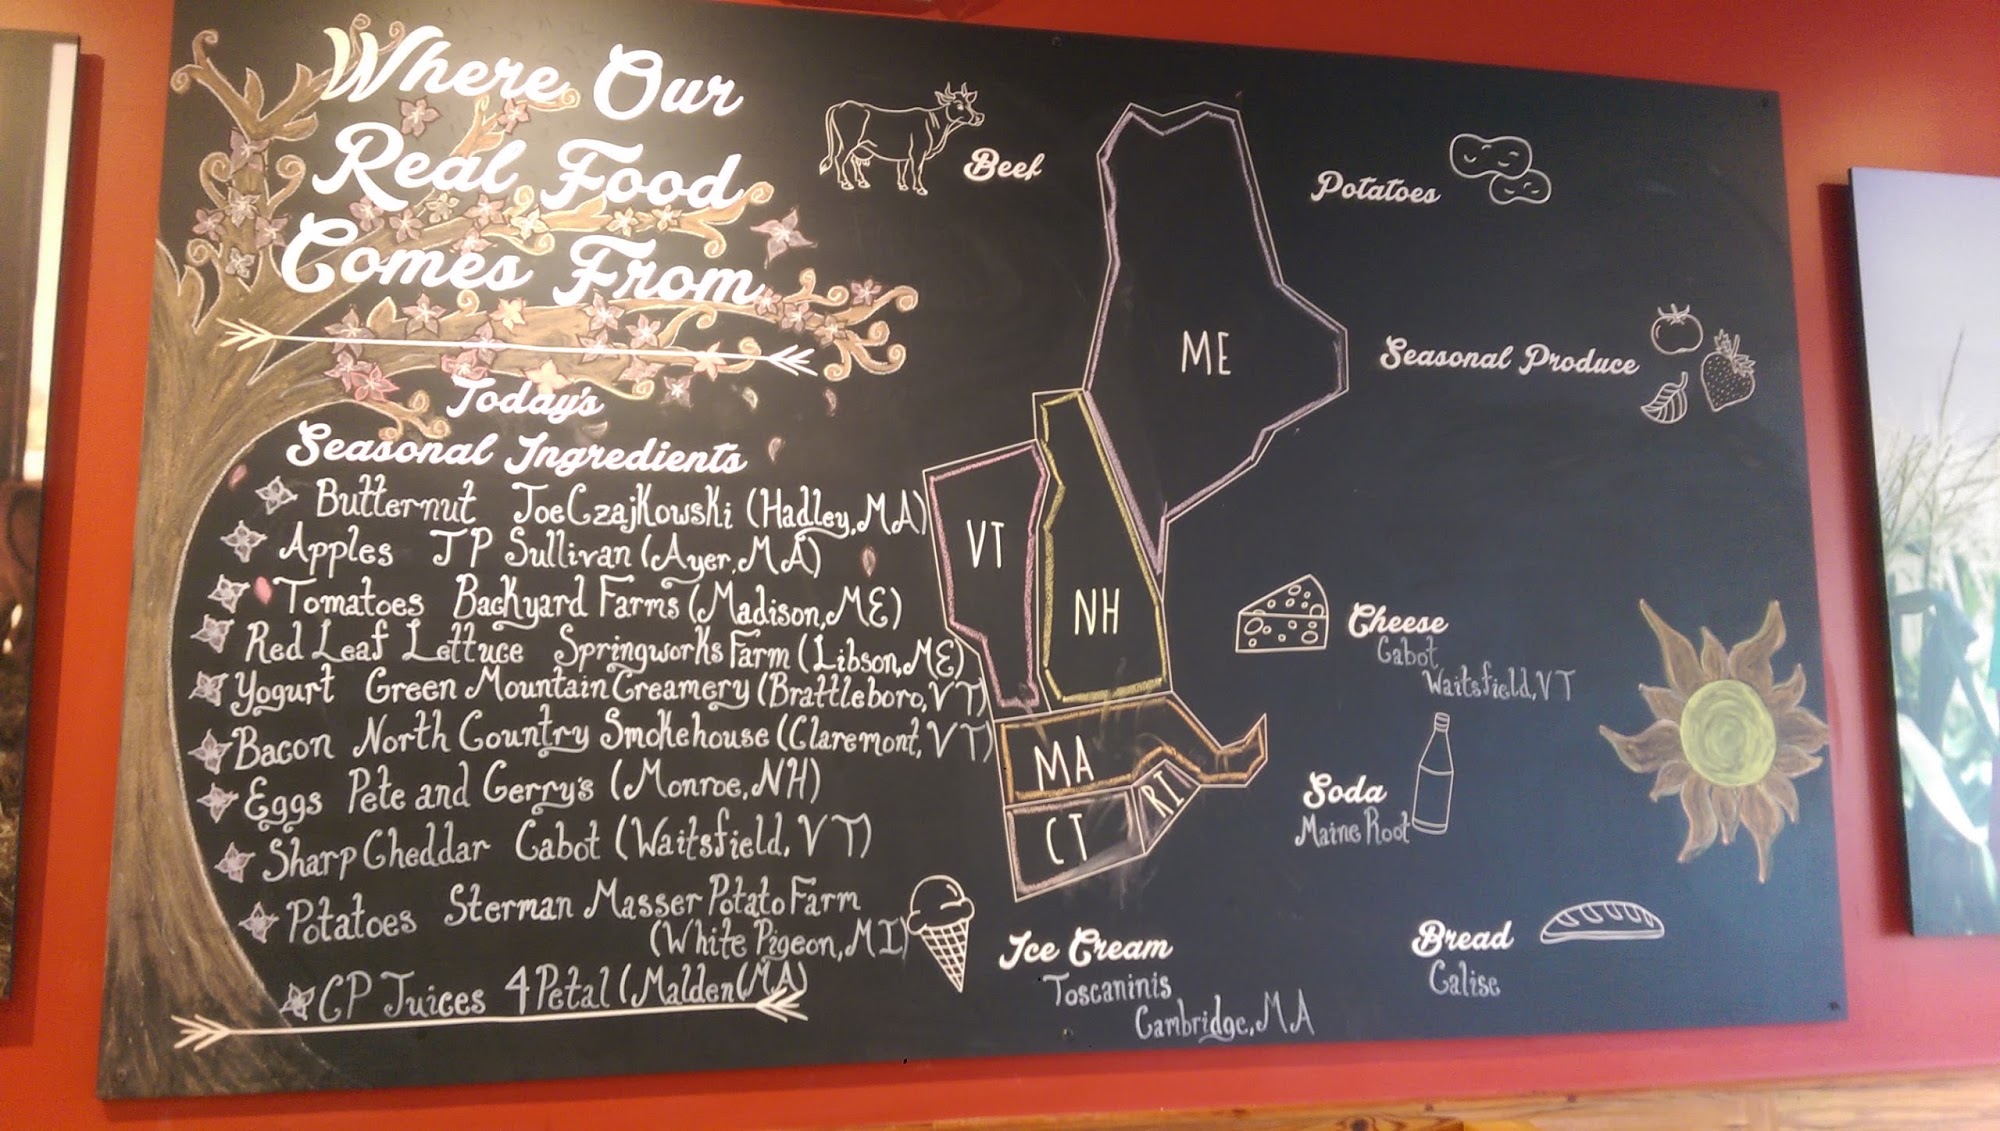 Where Our
Real Food
Comes From
Today's
Seasonal Ingredients
Butternut Joe Czajkowski (Hadley, MA)
Apples J P Sullivan (Ayer, MA)
Tomatoes Backyard Farms (Madison, ME)
Red Leaf Lettuce Springworks Farm (Libson, ME)
Yogurt Green Mountain Creamery (Brattleboro, VT)
Bacon North Country Smokehouse (Claremont, VT)
Eggs Pete and Gerry's (Monroe, NH)
Sharp Cheddar Cabot (Waitsfield, VT)
Potatoes Sterman Masser Potato Farm
(White Pigeon, MI)
CP Juices 4 Petal (Malden (MA)
Beef
Potatoes
Seasonal Produce
ME
VT
NH
MA
RI
CT
Cheese
Cabot
Waitsfield, VT
Soda
Maine Root
Ice Cream
Toscaninis
Cambridge, MA
Bread
Calise